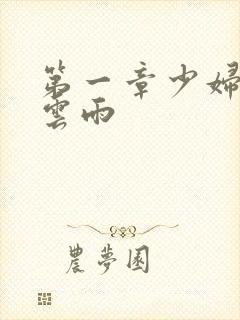 第一章少婦
雲雨
農夢園